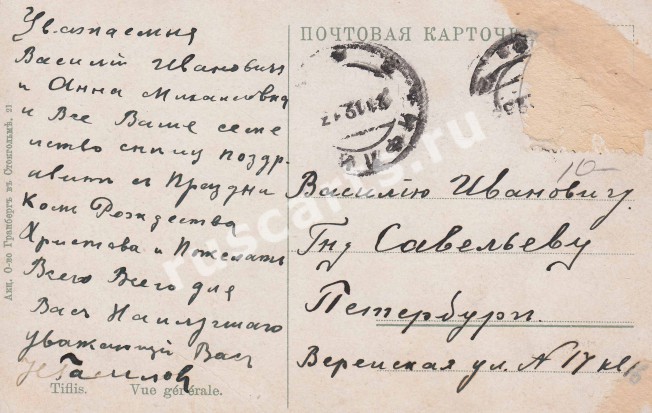 Уважаемия
Василий Ивановичъ
и Анна Михаиловна
и Все Ваше семе
йство спешу поздр-
авить съ Праздни
комъ Рождества
Христова и Пожелать
Всего Всего для
Васъ Наилучшаго
уважающий Васъ
Tiflis. Vue générale.
Акц. О-во Гранбергъ въ Стокгольмѣ. 21
ПОЧТОВАЯ КАРТОЧ
ТИФЛИС
21.12.17
10-
Василію Ивановичу
Гну Савельеву
Петербург.
Верейская ул. N 17 кв 16
ruscards.ru